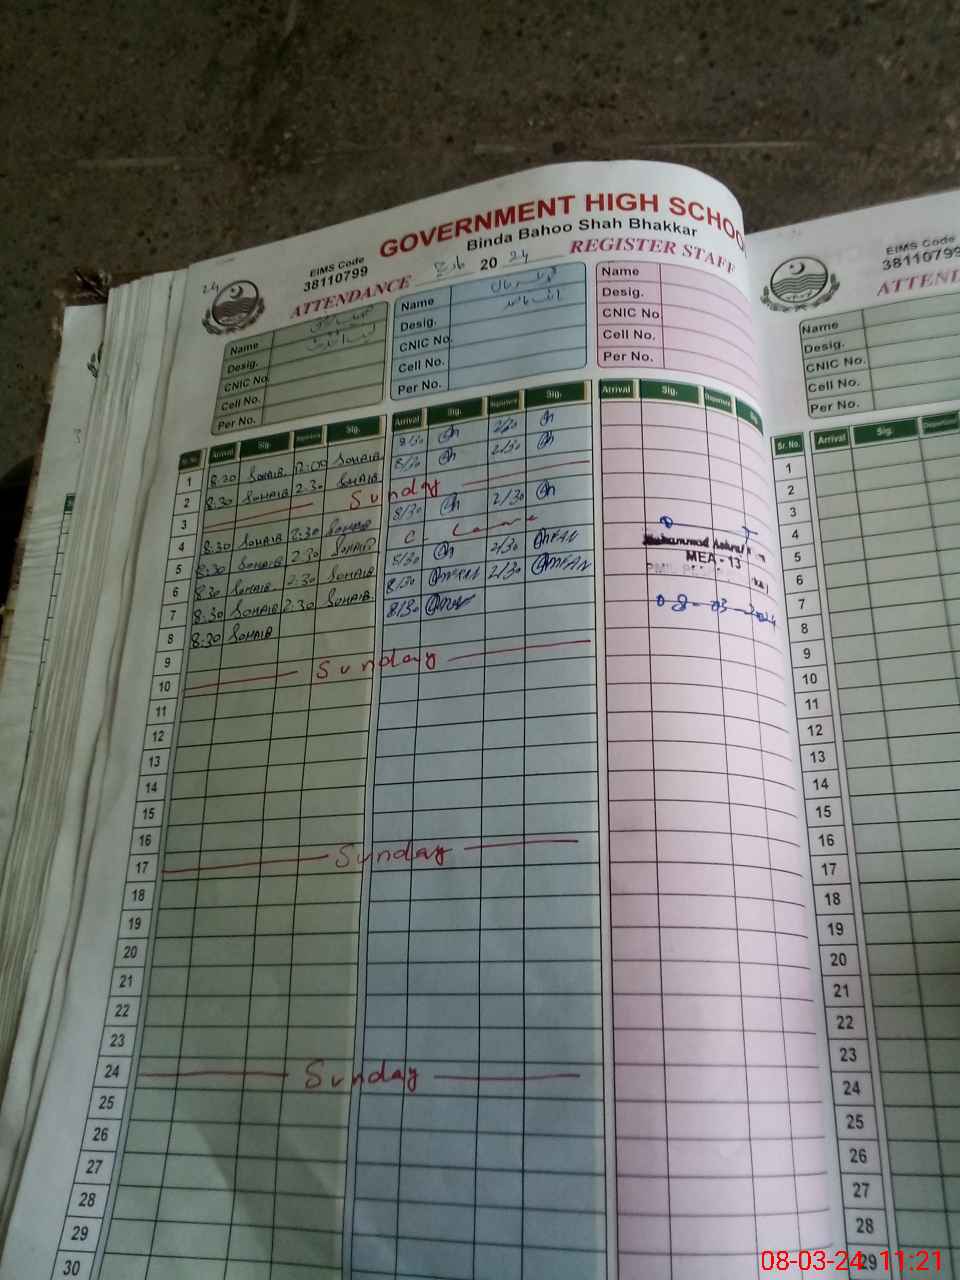 GOVERNMENT HIGH SCHOO
Binda Bahoo Shah Bhakkar
24
EIMS Code
38110799
ATTENDANCE مارچ 20 24 REGISTER STAFF
Name
Desig.
CNIC No.
Cell No.
Per No.
Name
Desig.
CNIC No.
Cell No.
Per No.
Name
Desig.
CNIC No
Cell No.
Per No.
Sr. No. Arrival Sig. Departure Sig. Arrival Sig. Departure Sig. Arrival Sig. Departure Sig
1 8:30 SOHAIB 12:00 SOHAIB 8/30 2/30
2 8:30 SOHAIB 2:30 SOHAIB 8/30 2/30
3 Sunday
4 8:30 SOHAIB 2:30 SOHAIB 8/30 2/30
5 8:30 SOHAIB 2:30 SOHAIB C. Leave
6 8:30 SOHAIB 2:30 SOHAIB 8/30 2/30
7 8:30 SOHAIB 2:30 SOHAIB 8/30 2/30
8 8:30 SOHAIB 8/30
9
10 Sunday
11
12
13
14
15
16
17 Sunday
18
19
20
21
22
23
24 Sunday
25
26
27
28
29
30
Muhammad
MEA-13
08-03-2024
EIMS Code
38110799
ATTEND
Name
Desig.
CNIC No.
Cell No.
Per No.
Sr. No. Arrival Sig. Departure
1
2
3
4
5
6
7
8
9
10
11
12
13
14
15
16
17
18
19
20
21
22
23
24
25
26
27
28
29
08-03-24 11:21